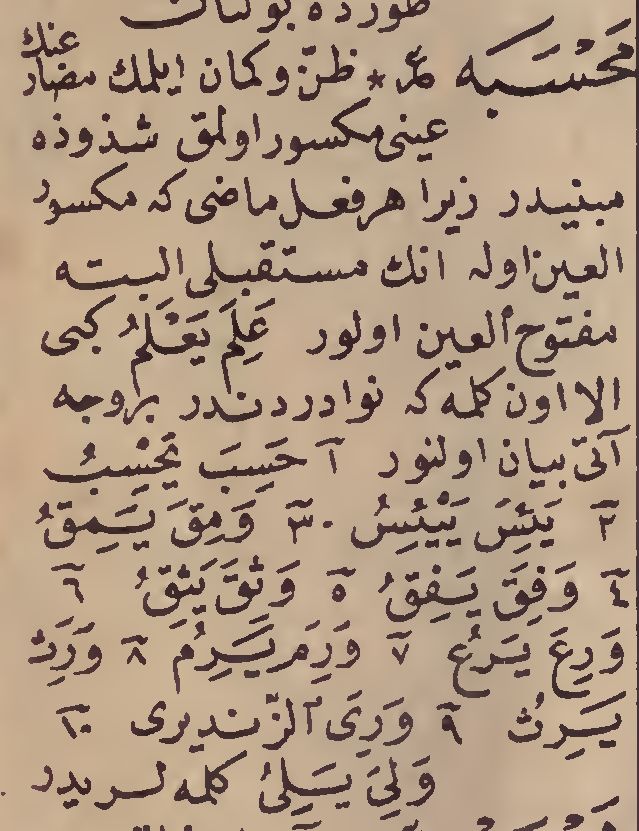 طورده بولنان
مَحْسَبَه * ظنّ وكمان ايلمك مضارعنك
عينى مكسور اولمق شذوذه
مبنيدر زيرا هر فعل ماضى كه مكسور
العين اوله انك مستقبلى البته
مفتوح العين اولور عَلِمَ يَعْلَمُ كبى
الا اون كلمه كه نوادردندر بروجه
آتى بيان اولنور ١ حَسِبَ يَحْسِبُ
٢ يَئِسَ يَيْئِسُ ٣ وَمِقَ يَمِقُ
٤ وَفِقَ يَفِقُ ٥ وَثِقَ يَثِقُ ٦
وَرِعَ يَرِعُ ٧ وَرِمَ يَرِمُ ٨ وَرِثَ
يَرِثُ ٩ وَرِىَ الزّند يرى ١٠
وَلِىَ يَلِىُ كلمه لريدر